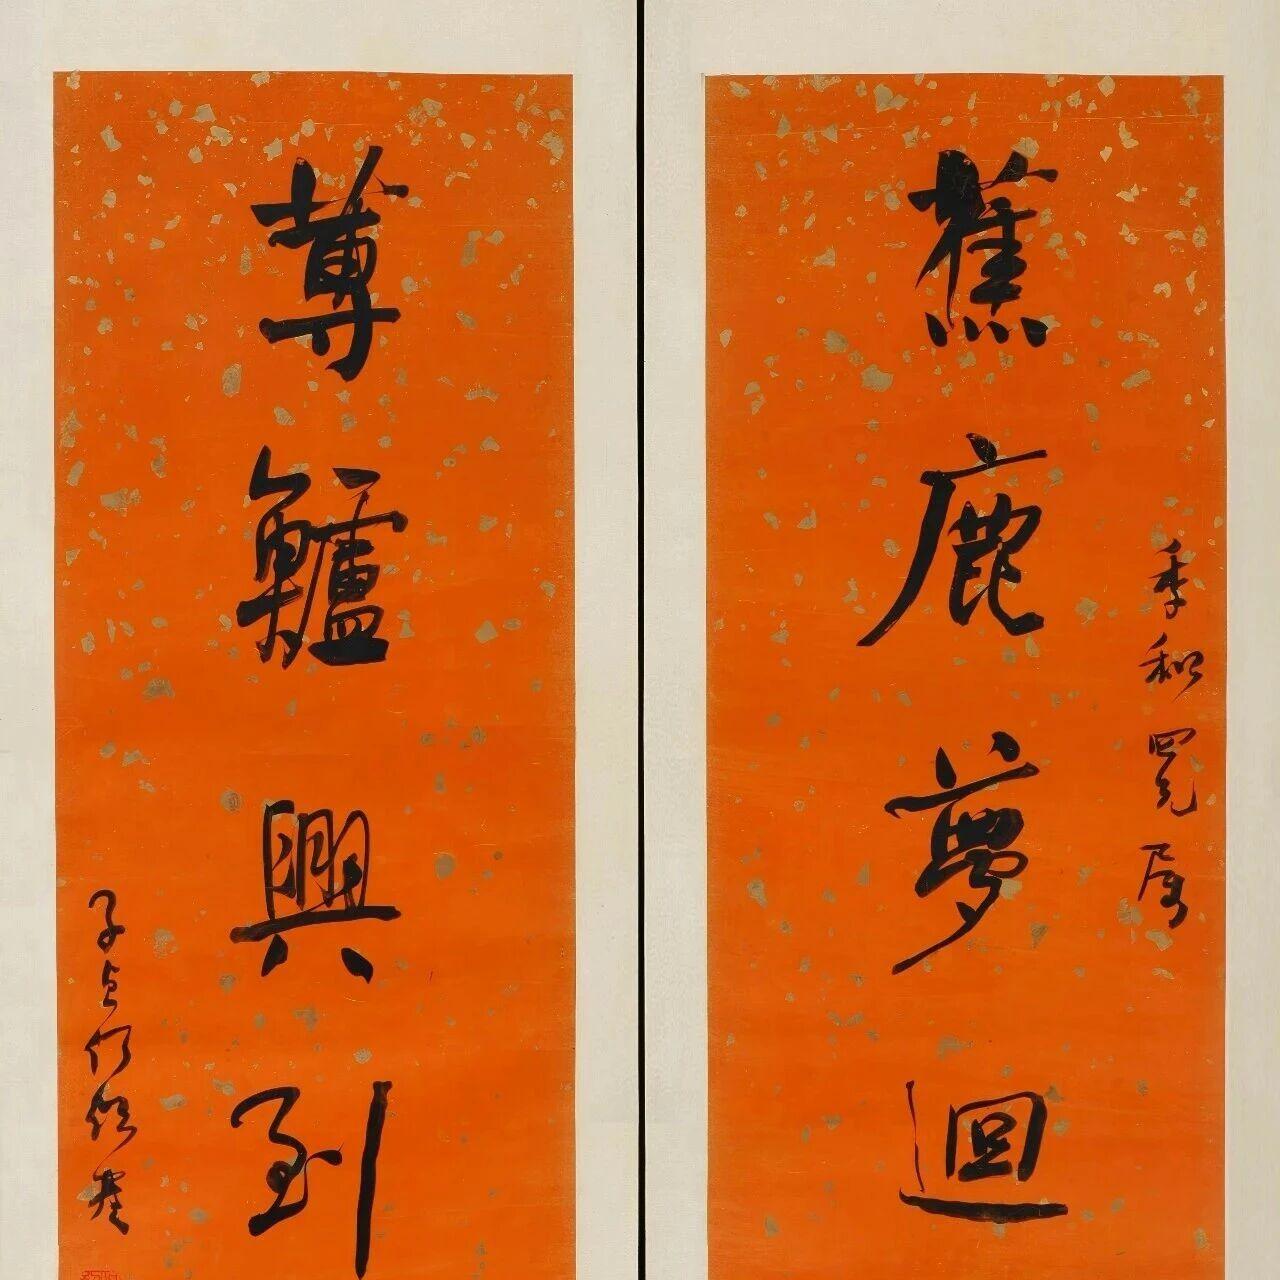 季和四兄屬
蕉鹿夢迴
蓴鱸興到
子貞何紹基